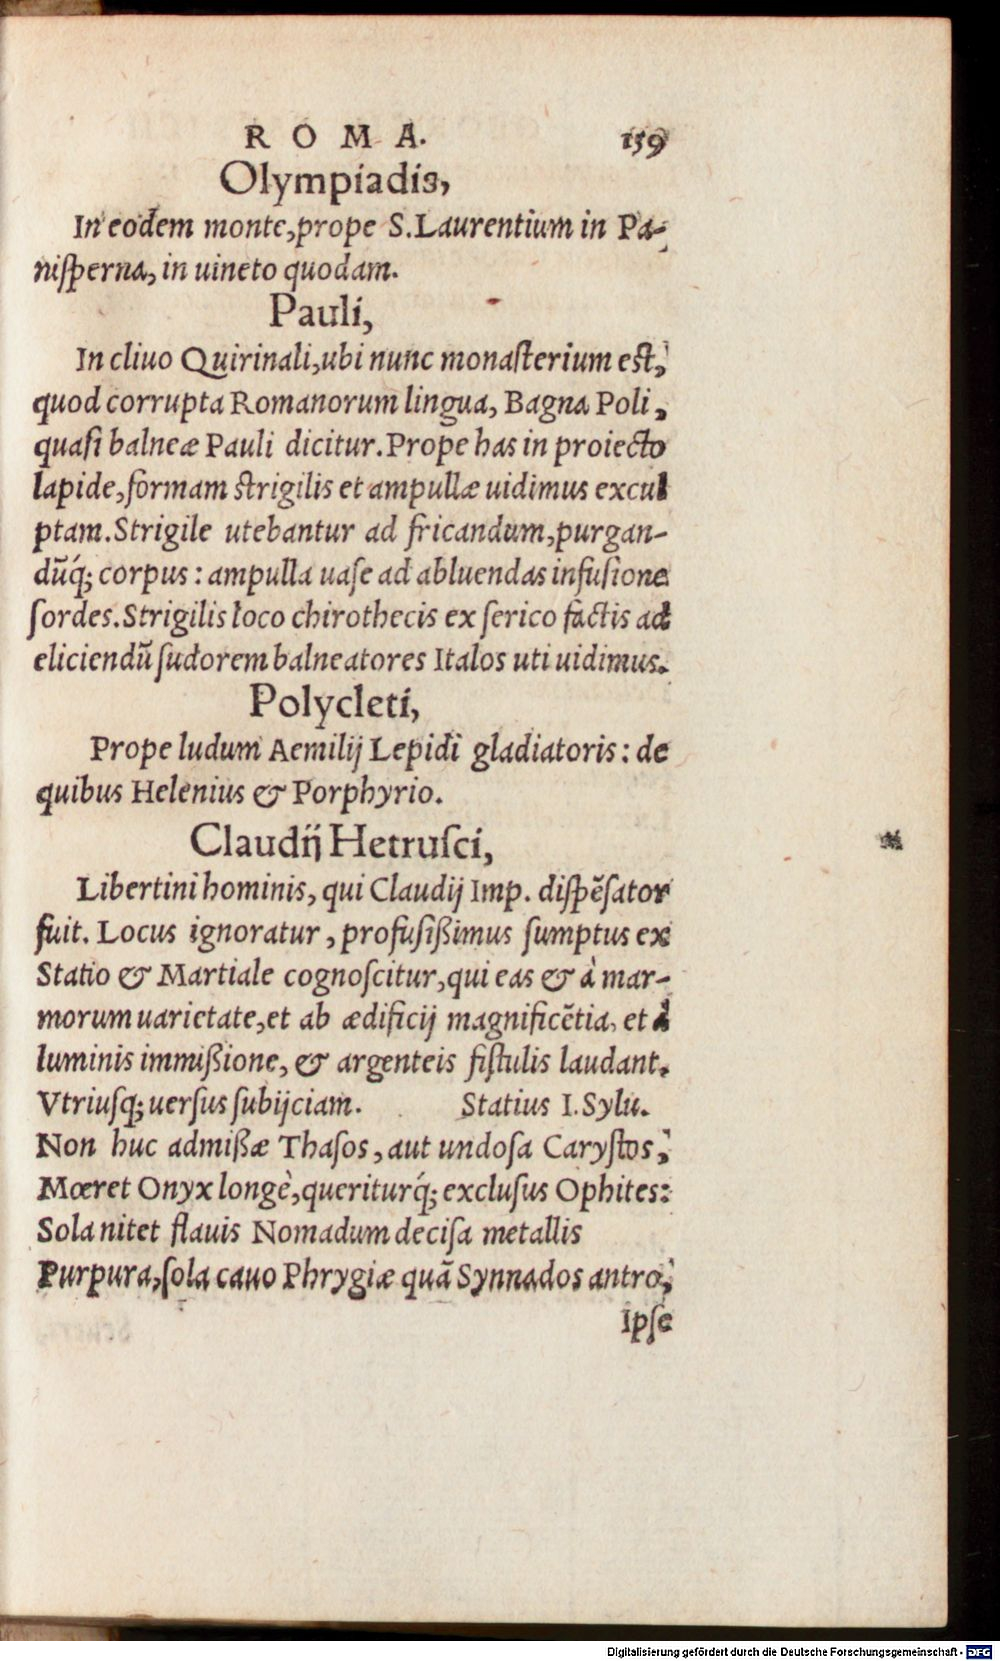 ROMA. 159
Olympiadis,
In eodem monte, prope S. Laurentium in Pa-
nisperna, in uineto quodam.
Pauli,
In cliuo Quirinali, ubi nunc monasterium est,
quod corrupta Romanorum lingua, Bagna Poli,
quasi balneæ Pauli dicitur. Prope has in proiecto
lapide, formam strigilis et ampullæ uidimus excul
ptam. Strigile utebantur ad fricandum, purgan-
dũq́; corpus: ampulla uase ad abluendas infusione
sordes. Strigilis loco chirothecis ex serico factis ad
eliciendũ sudorem balneatores Italos uti uidimus.
Polycleti,
Prope ludum Aemilij Lepidi gladiatoris: de
quibus Helenius & Porphyrio.
Claudij Hetrusci,
Libertini hominis, qui Claudij Imp. dispẽsator
fuit. Locus ignoratur, profusißimus sumptus ex
Statio & Martiale cognoscitur, qui eas & à mar-
morum uarietate, et ab ædificij magnificẽtia, et à
luminis immißione, & argenteis fistulis laudant.
Vtriusq; uersus subijciam. Statius I. Sylu.
Non huc admißæ Thasos, aut undosa Carystos,
Mœret Onyx longè, queriturq́; exclusus Ophites:
Sola nitet flauis Nomadum decisa metallis
Purpura, sola cauo Phrygiæ quã Synnados antro,
Ipse
Digitalisierung gefördert durch die Deutsche Forschungsgemeinschaft - DFG